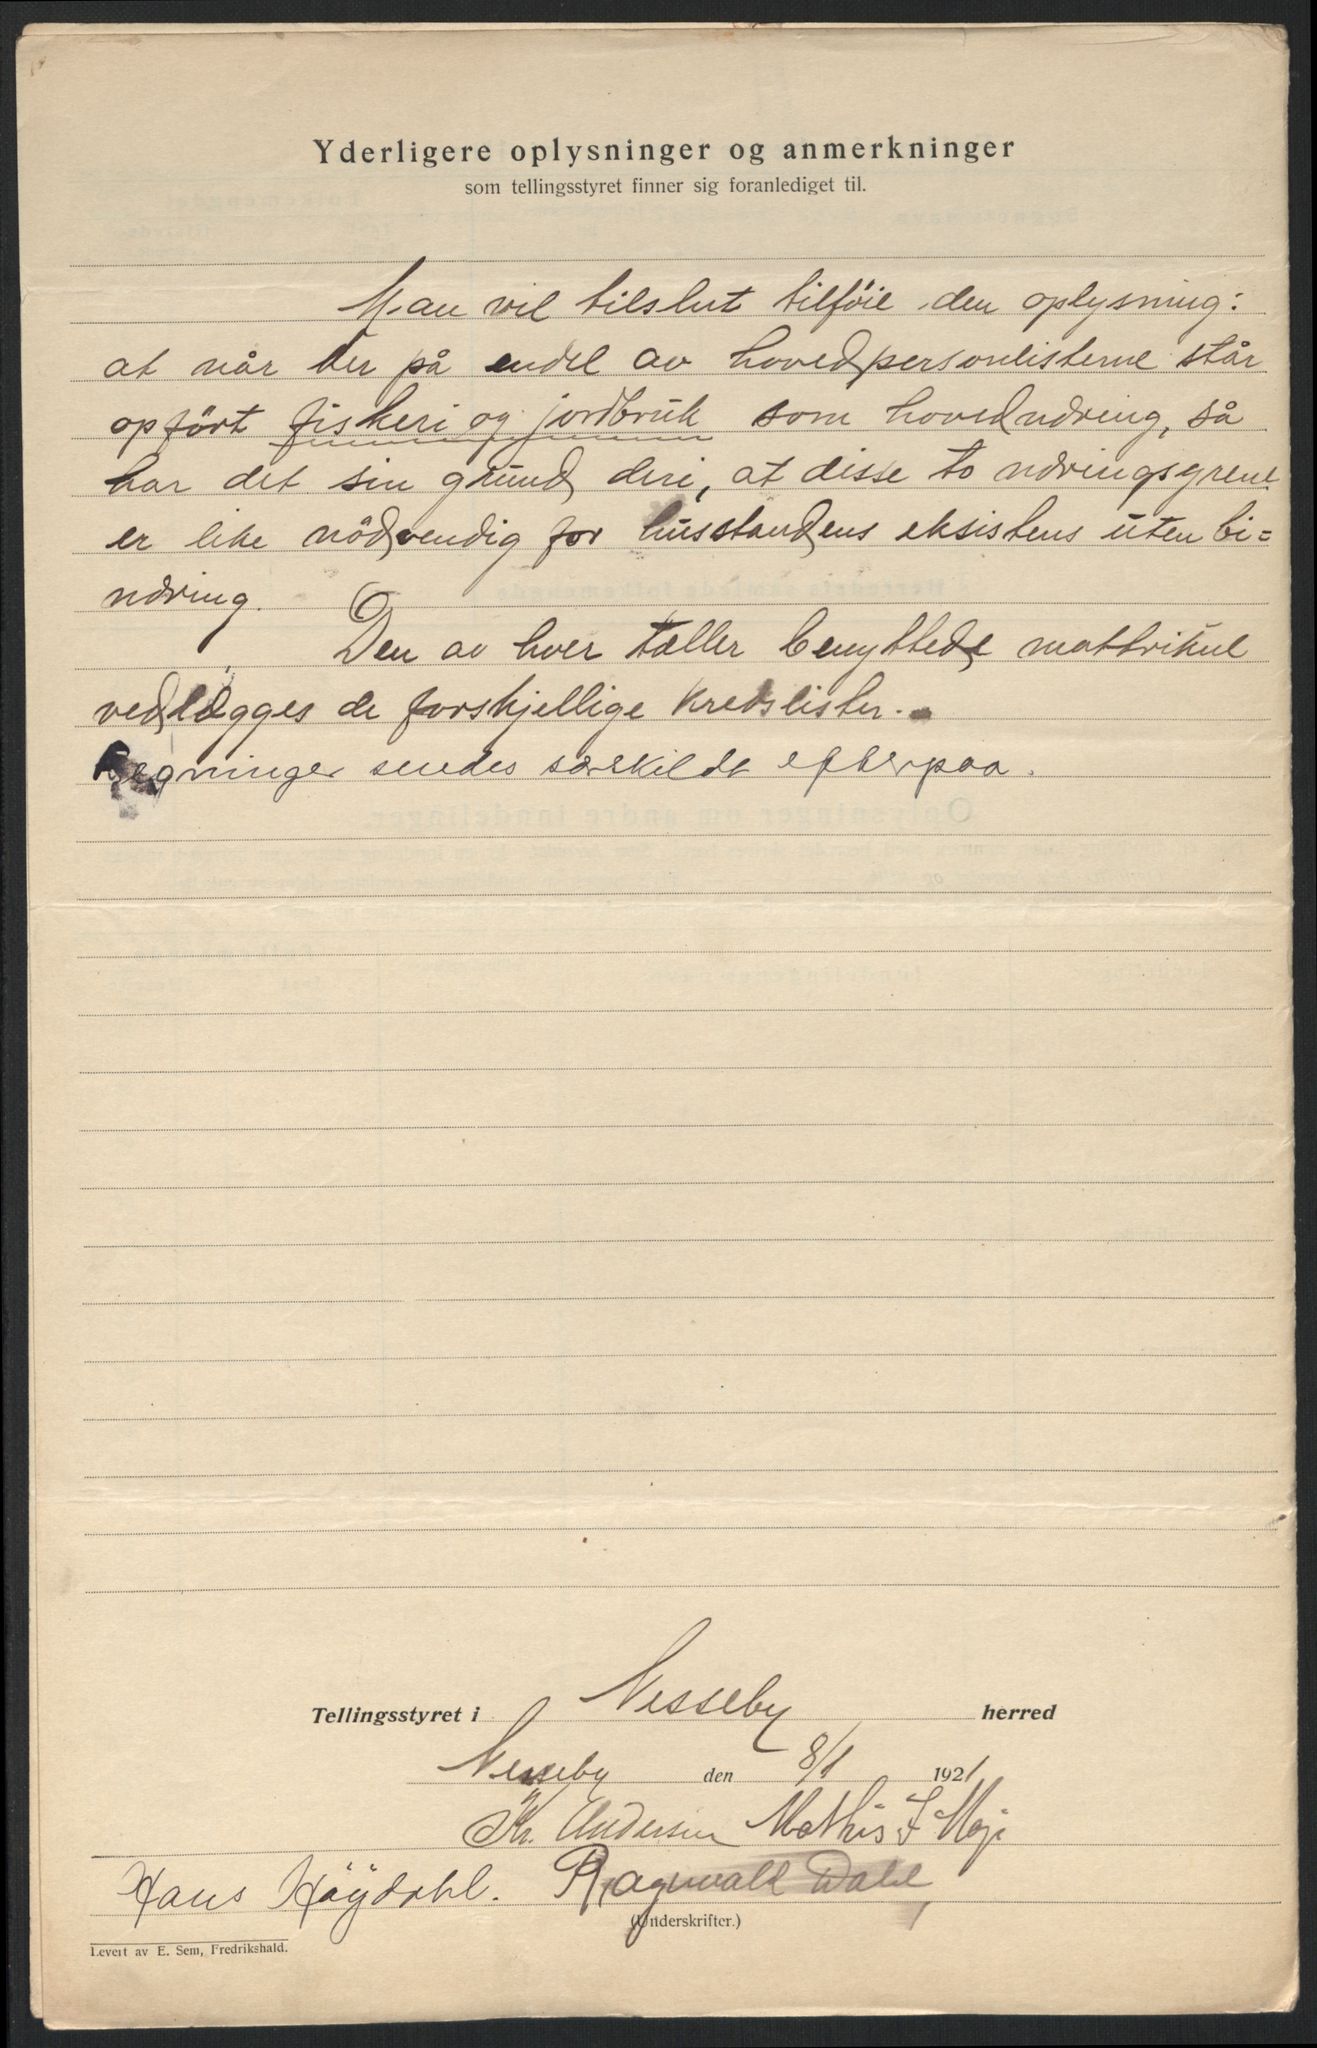 Yderligere oplysninger og anmerkninger
som tellingsstyret finner sig foranlediget til.
Man vil tilslut tilföie den oplysning:
at når der på endel av hovedpersonlisterne står
opfört fiskeri og jordbruk som hovednæring, så
har det sin grund deri, at disse to næringsgrene
er like nödvendig for husstandens eksistens uten bi=
næring.
Den av hver tæller benyttede mattrikul
vedlægges de forskjellige kredslister.
Regninger sendes særskildt efterpaa.
Tellingsstyret i Nesseby herred
Nesseby den 8/1 1921
Kr. Andersen Mathis I
Hans Höÿdahl. Ragnvald Dahl
(Underskrifter.)
Levert av E. Sem, Fredrikshald.